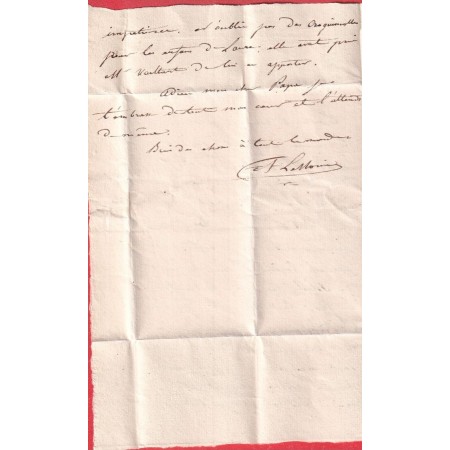 impatience. n'oublie pas des Croquignolles
pour les enfans de Laure, elle avait prié
Mr Vaillant de lui en apporter.
adieu mon cher Papa je
t'embrasse de tout mon coeur et t'attends
de même.
Bien des choses à tout le monde